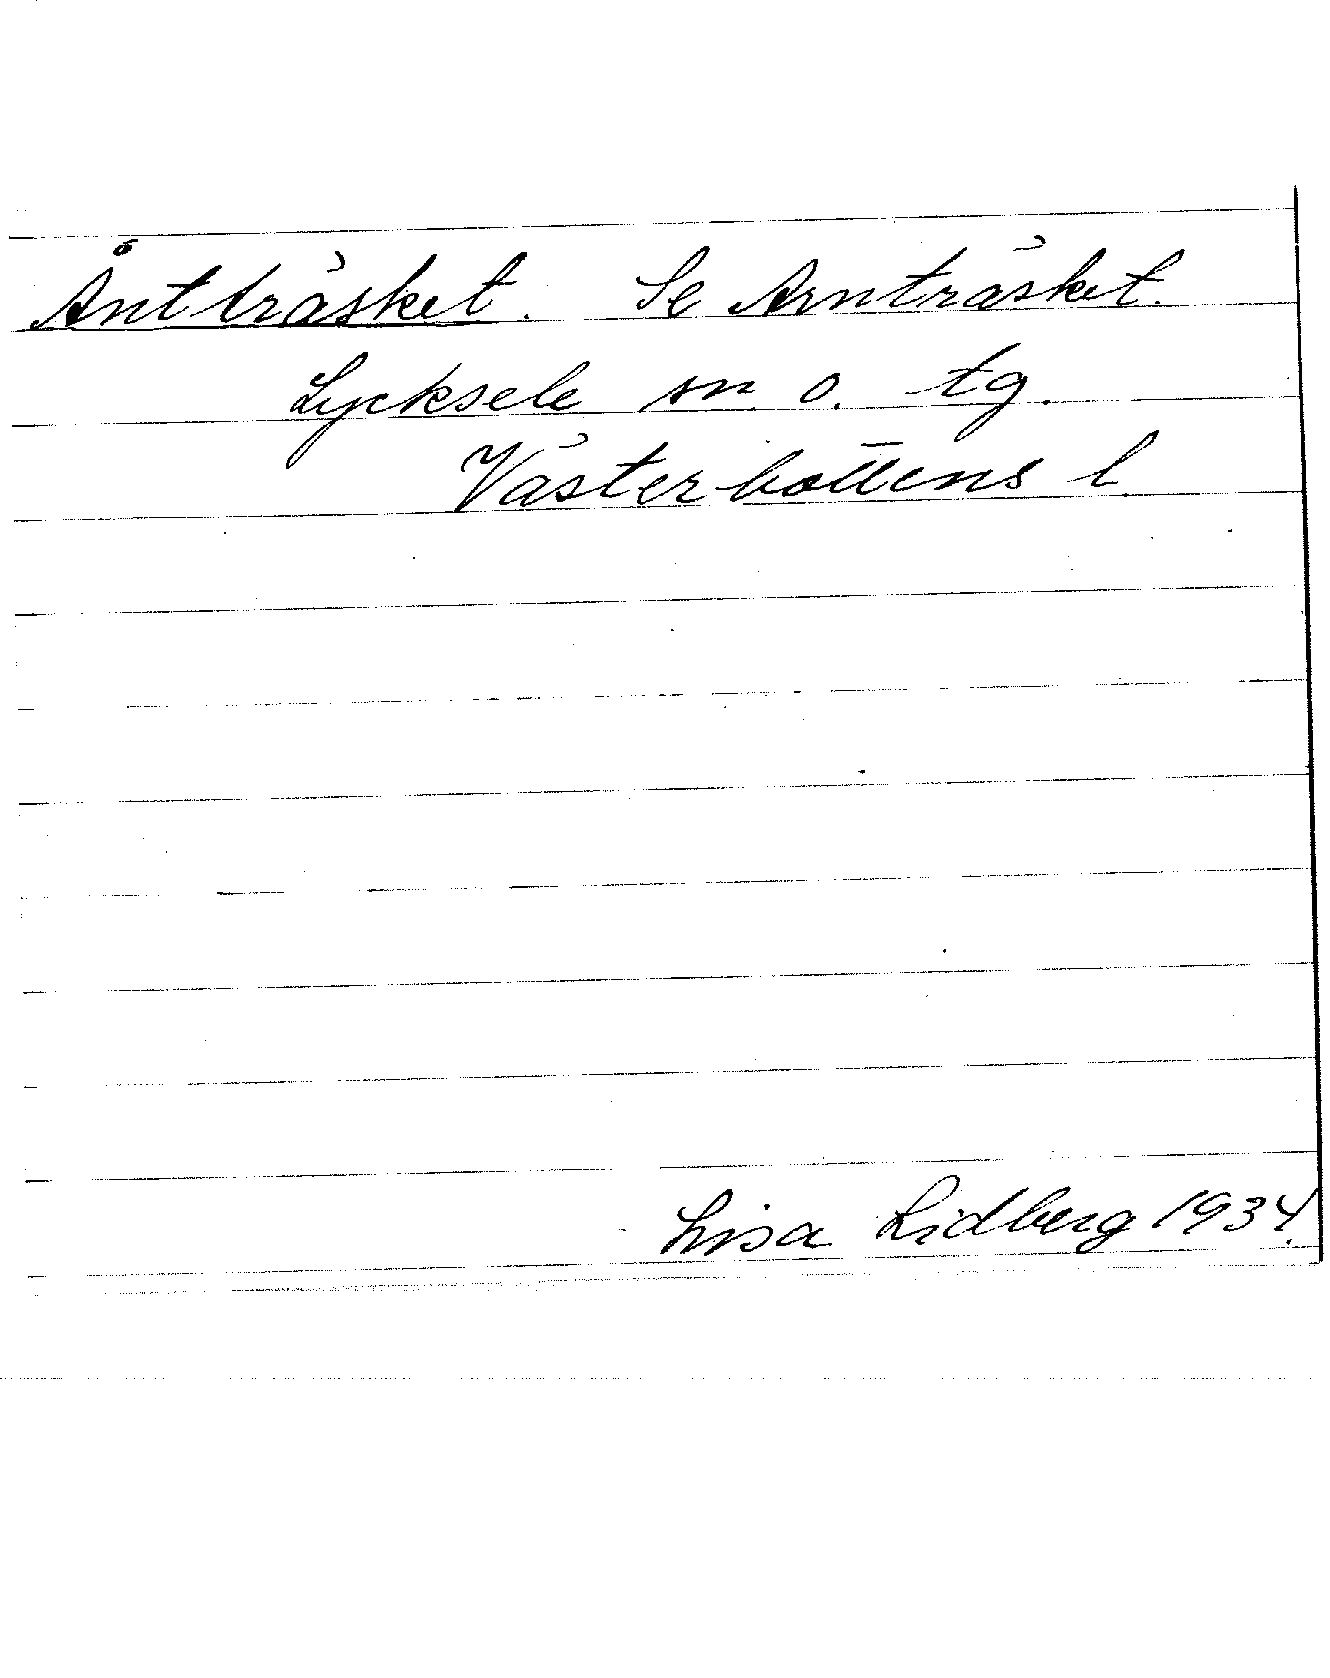 Åntträsket. Se Arnträsket.
Lycksele sn o. tg.
Västerbottens l
Lisa Lidberg 1934.